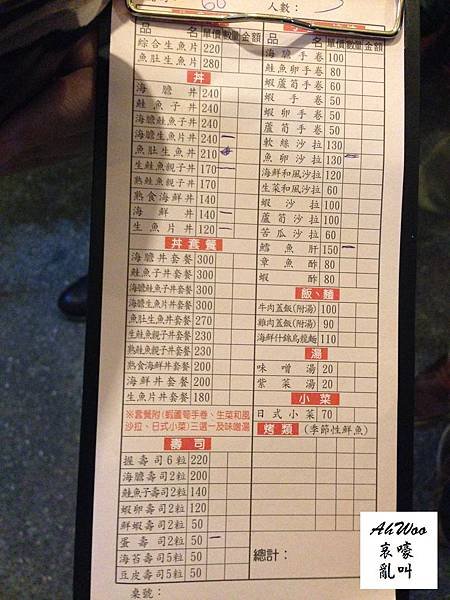 60 人數：
品 名 單價 數量 金額
綜合生魚片 220
魚肚生魚片 280
丼
海膽丼 240
鮭魚子丼 240
海膽鮭魚子丼 240
海膽生魚片丼 240
魚肚生魚丼 210
生鮭魚親子丼 170
熟鮭魚親子丼 170
熟食海鮮丼 140
海鮮丼 140
生魚片丼 120
丼套餐
海膽丼套餐 300
鮭魚子丼套餐 300
海膽鮭魚子丼套餐 300
海膽生魚片丼套餐 300
魚肚生魚丼套餐 270
生鮭魚親子丼套餐 230
熟鮭魚親子丼套餐 230
熟食海鮮丼套餐 200
海鮮丼套餐 200
生魚片丼套餐 180
※套餐附(蝦蘆筍手卷、生菜和風
沙拉、日式小菜)三選一及味噌湯
壽司
握壽司6粒 220
海膽壽司2粒 200
鮭魚子壽司2粒 140
蝦卵壽司2粒 120
鮮蝦壽司2粒 50
蛋壽司2粒 50
海苔壽司5粒 50
豆皮壽司5粒 50
桌號：
品 名 單價 數量 金額
海膽手卷 100
鮭魚卵手卷 80
蝦蘆筍手卷 60
蝦手卷 50
蝦卵手卷 50
蘆筍手卷 50
軟絲沙拉 130
魚卵沙拉 130
海鮮和風沙拉 120
生菜和風沙拉 60
蝦沙拉 100
蘆筍沙拉 100
苦瓜沙拉 60
鱈魚肝 150
章魚酢 80
蝦酢 80
飯、麵
牛肉蓋飯(附湯) 100
雞肉蓋飯(附湯) 90
海鮮什錦烏龍麵 110
湯
味噌湯 20
紫菜湯 20
小菜
日式小菜 70
烤類 (季節性鮮魚)
總計：
AhWoo
哀嚎
亂叫